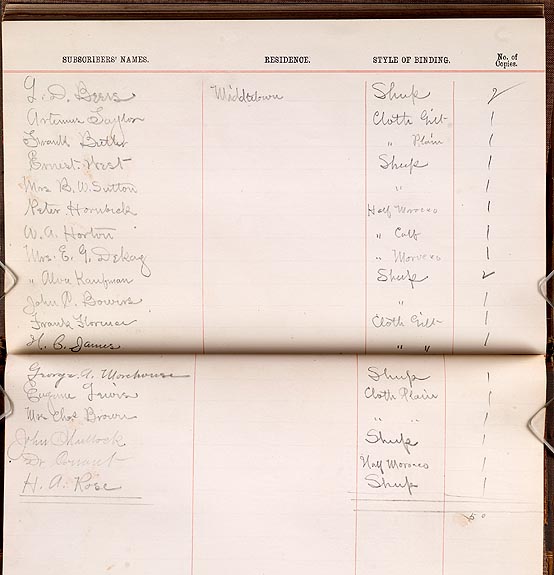 SUBSCRIBERS' NAMES. RESIDENCE. STYLE OF BINDING. No. of Copies.
L. D. Beers Middletown Sheep 2
Artemus Taylor Cloth Gilt 1
Frank Butler " Plain 1
Ernest West Sheep 1
Mrs B. W. Sutton " 1
Peter Hornbeck Half Morocco 1
W. A. Horton " Calf 1
Mrs. E. G. Dekay " Morocco 1
" Alva Kaufman Sheep 2
John P. Bowers " 1
Frank Florence Cloth Gilt 1
H. C. James " " 1
George A. Morehouse Sheep 1
Eugene Lewis Cloth Plain 1
Mrs Chas Brown " " 1
John Mullock Sheep 1
Dr. Conant Half Morocco 1
H. A. Rose Sheep 1